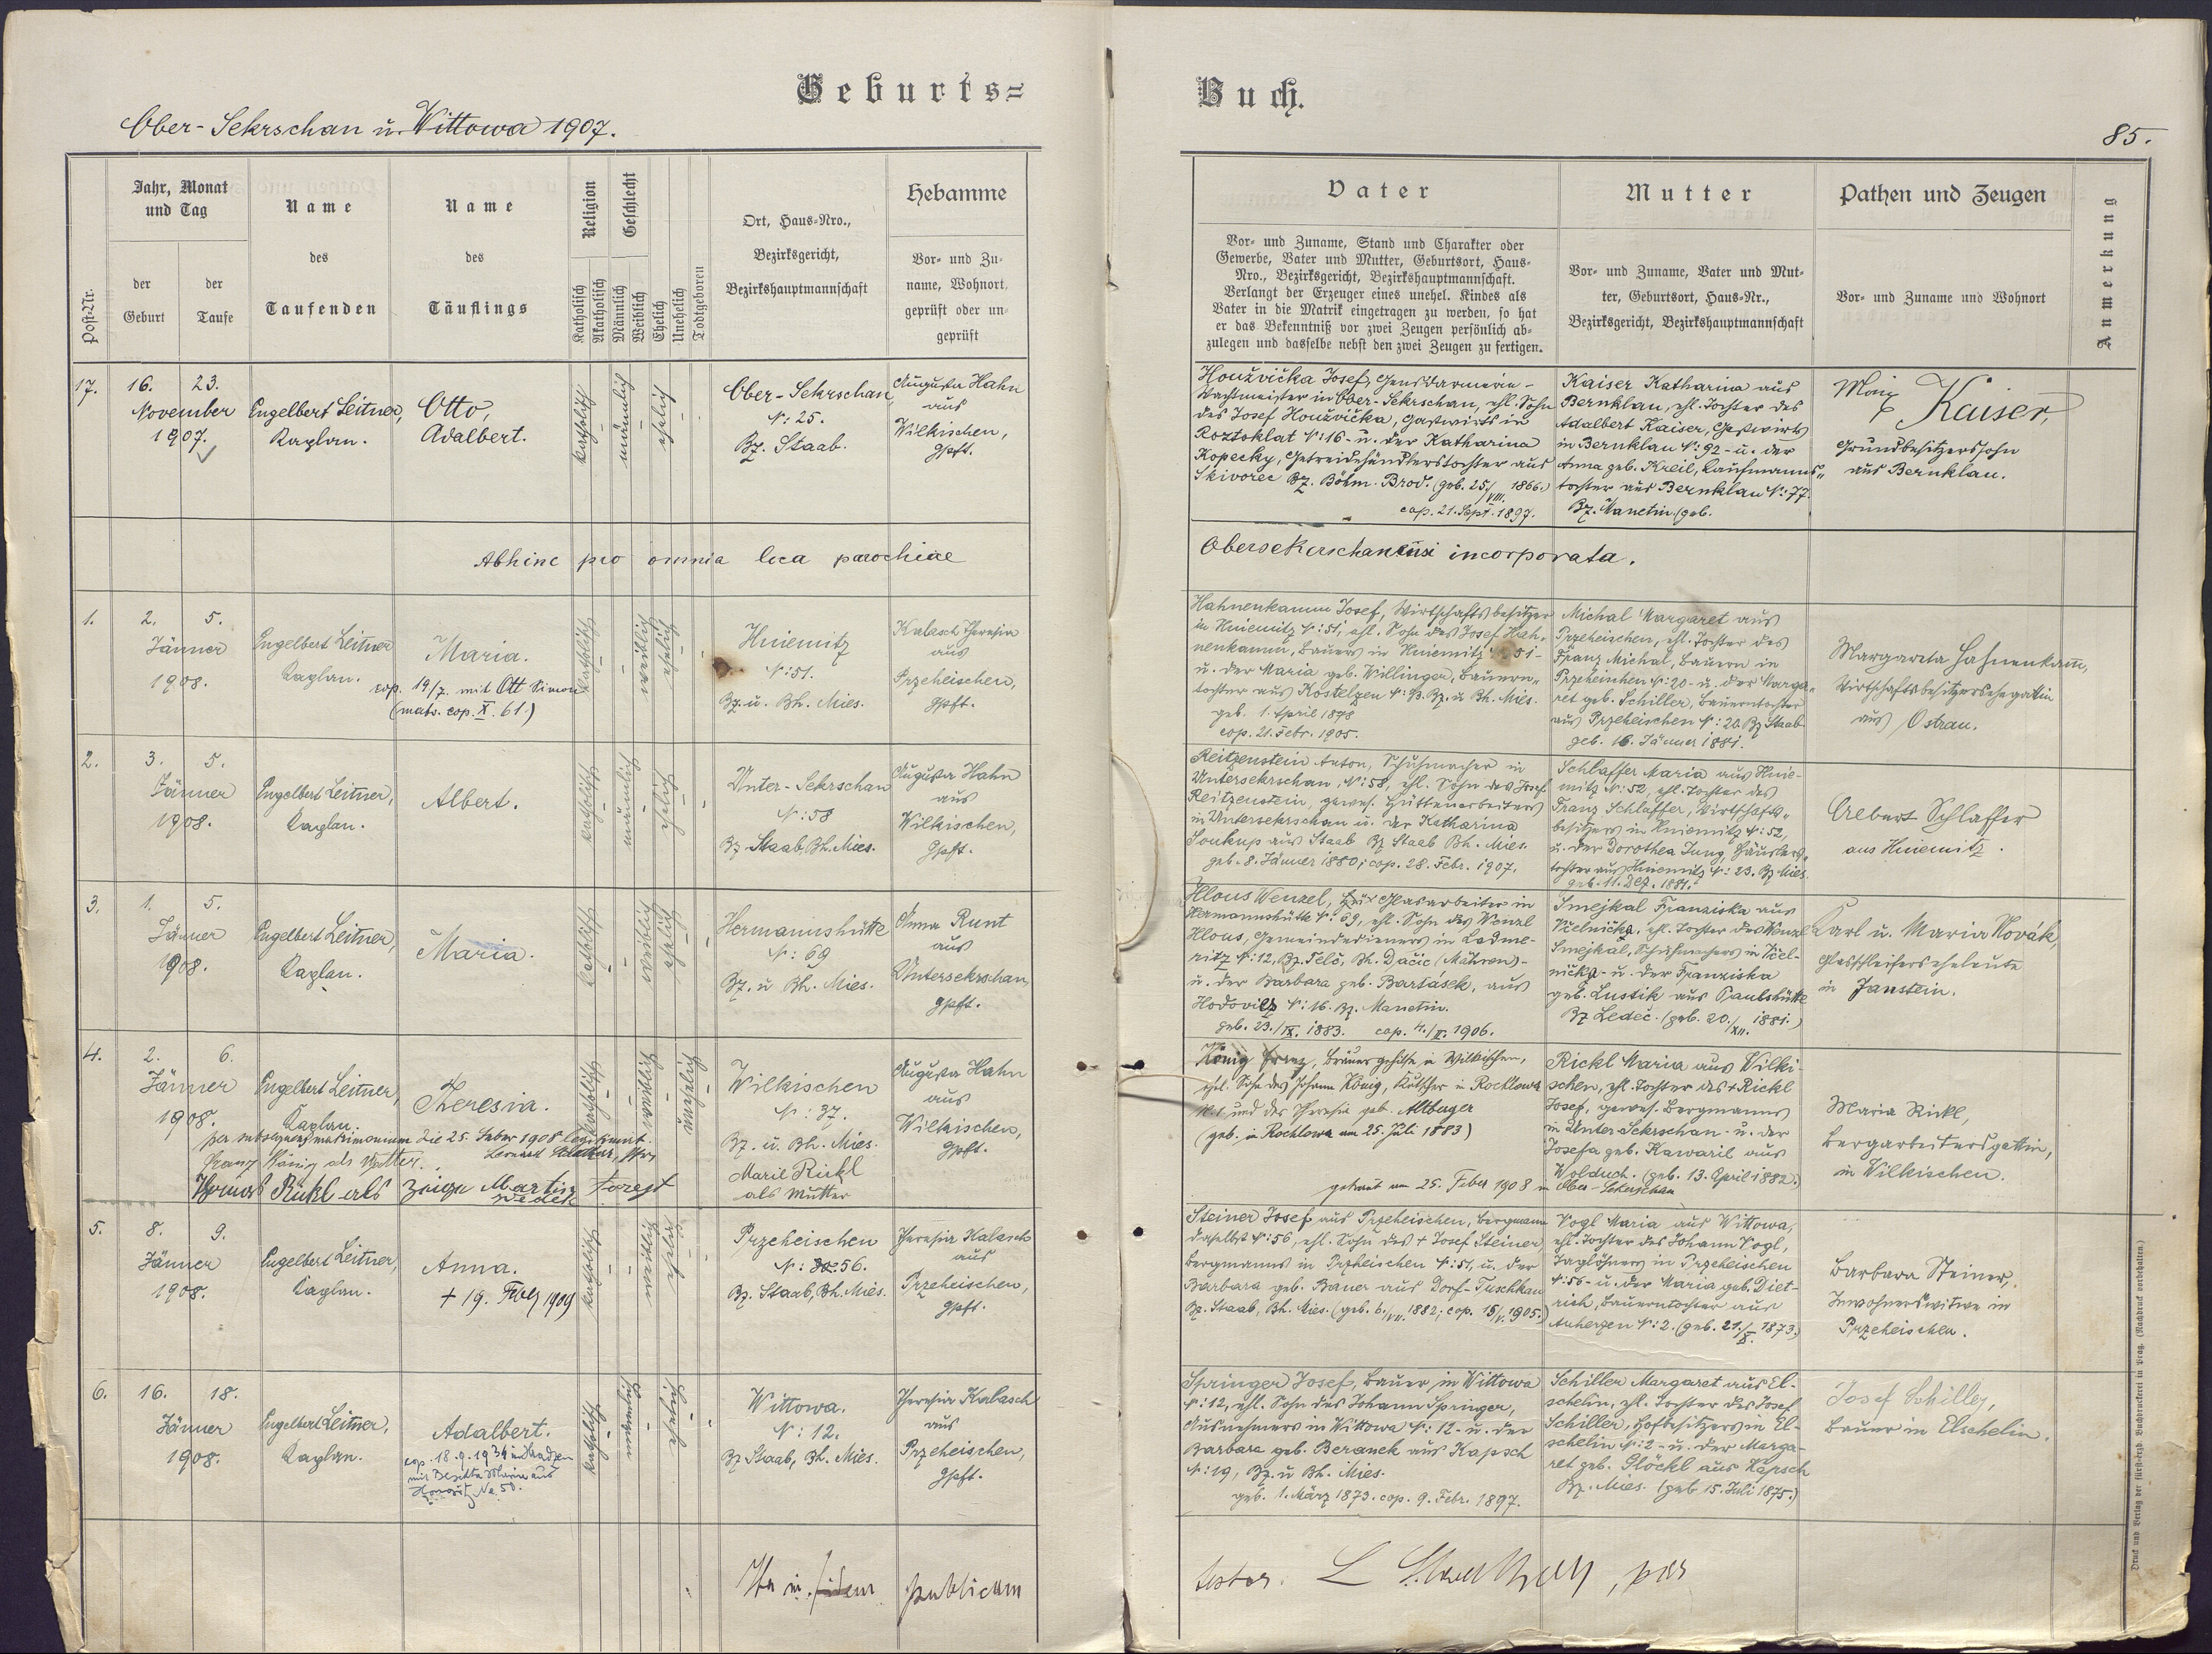 Geburts=
Buch.
Ober-Sekrschan u. Wittowa 1907.
85.
Post-Nr.
Jahr, Monat
und Tag
der
Geburt
der
Taufe
Name
des
Taufenden
Name
des
Täuflings
Religion
Katholisch
Akatholisch
Geschlecht
Männlich
Weiblich
Ehelich
Unehelich
Todtgeboren
Ort, Haus-Nro.,
Bezirksgericht,
Bezirkshauptmannschaft
Hebamme
Vor- und Zu-
name, Wohnort,
geprüft oder un-
geprüft
Vater
Vor- und Zuname, Stand und Charakter oder
Gewerbe, Vater und Mutter, Geburtsort, Haus-
Nro., Bezirksgericht, Bezirkshauptmannschaft.
Verlangt der Erzeuger eines unehel. Kindes als
Vater in die Matrik eingetragen zu werden, so hat
er das Bekenntniß vor zwei Zeugen persönlich ab-
zulegen und dasselbe nebst den zwei Zeugen zu fertigen.
Mutter
Vor- und Zuname, Vater und Mut-
ter, Geburtsort, Haus-Nr.,
Bezirksgericht, Bezirkshauptmannschaft
Pathen und Zeugen
Vor- und Zuname und Wohnort
Anmerkung
17.
16. 23.
November
1907.
Engelbert Leitner,
Kaplan.
Otto,
Adalbert.
katholisch
männlich
ehelich
Ober-Sekrschan,
N: 25.
Bz. Staab.
Augusta Hahn
aus
Wilkischen,
gpft.
Houžvička Josef, Gendarmerie-
Wachtmeister in Ober-Sekrschan, ehl. Sohn
des Josef Houžvička, Gastwirts in
Roztoklat N: 16 - u. der Katharina
Kopecky, Getreidehändlerstochter aus
Skivorec Bz. Böhm. Brod. (geb. 25./VIII. 1866.)
cop. 21. Sept. 1897.
Kaiser Katharina aus
Bernklau, ehl. Tochter des
Adalbert Kaiser, Gastwirts
in Bernklau N: 92 - u. der
Anna geb. Kreil, Kaufmanns"
tochter aus Bernklau N: 77.
Bz. Manetin (geb.
Kaiser,
Grundbesitzerssohn
aus Bernklau.
Abhinc pro omnia loca parochiae
Obersekerschanensi incorporata.
1.
2. 5.
Jänner
1908.
Engelbert Leitner
Kaplan.
Maria.
cop. 19/7. mit Ott Simon
(matr. cop. X. 61.)
katholisch
weiblich
ehelich
Hniemitz
N: 51.
Bz. u. Bh. Mies.
Kalasch Theresia
aus
Przeheischen,
gpft.
Hahnenkamm Josef, Wirtschaftsbesitzer
in Hniemitz N: 51, ehl. Sohn des Josef Hah-
nenkamm, Bauers in Hniemitz 51 -
u. der Maria geb. Willinger, Bauern"
tochter aus Kostelzen N: 13. Bz. u Bh. Mies.
geb. 1. April 1878
cop. 21. Febr. 1905.
Michal Margaret aus
Przeheischen, ehl. Tochter des
Franz Michal, Bauern in
Przeheischen N: 20 - u. der Marga"
ret geb. Schiller, Bauerntochter
aus Przeheischen N: 20 Bz Staab
geb. 16. Jänner 1881.
Margareta Hahnenkam̄,
Wirtschaftsbesitzersehegattin
aus Ostrau.
2.
3. 5.
Jänner
1908.
Engelbert Leitner,
Kaplan.
Albert.
katholisch
männlich
ehelich
Unter-Sekrschan
N: 58
Bz. Staab, Bh. Mies.
Augusta Hahn
aus
Wilkischen,
gpft.
Reitzenstein Anton, Schuhmacher in
Untersekrschan, N: 58, ehl. Sohn des Josef
Reitzenstein, gewes. Hüttenarbeiters
in Untersekrschan u. der Katharina
Soukup aus Staab Bz Staab Bh. Mies.
geb. 8. Jänner 1880; cop. 28. Febr. 1907.
Schlaffer Maria aus Hnie-
mitz N: 52, ehl. Tochter des
Franz Schlaffer, Wirtschafts"
besitzers in Hniemitz N: 52,
u. der Dorothea Jung, Häuslers"
tochter aus Hniemitz N: 23. Bz Mies.
geb. 11. Dez. 1881.
Albert Schlaffer
aus Hniemitz.
3.
1. 5.
Jänner
1908.
Engelbert Leitner,
Kaplan.
Maria.
katholisch
weiblich
ehelich
Hermannshütte
N: 69
Bz. u Bh. Mies.
Anna Runt
aus
Untersekrschan,
gpft.
Hlous Wenzel, Glasarbeiter in
Hermannshütte N: 69, ehl. Sohn des Wenzl
Hlous, Gemeindedieners in Ladme-
ritz N: 12, Bz. Telč, Bh. Dačic (Mähren) -
u. der Barbara geb. Bartásek, aus
Hodovitz N: 16. Bz. Manetin.
geb. 23./IX. 1883. cop. 4./II. 1906.
Smejkal Franziska aus
Včelnička, ehl. Tochter des Wenzl
Smejkal, Schuhmachers in Včel-
nička - u. der Franziska
geb. Lustik aus Paulshütte
Bz Ledeč. (geb. 20./XII. 1881.)
Karl u. Maria Novák,
Glasschleiferseheleute
in Janstein.
4.
2. 6.
Jänner
1908.
Engelbert Leitner,
Kaplan.
Theresia.
per subsequens matrimonium die 25. Feber 1908 legitimiert.
Franz König als Vatter.
Thomas Rickl als Zeuge Martin Forejt
katholisch
weiblich
unehelich
Wilkischen
N: 37.
Bz. u. Bh. Mies.
Marie Rickl
als Mutter
Augusta Hahn
aus
Wilkischen,
gpft.
König Franz, Brauergehilfe in Wilkischen,
ehl. Sohn des Johann König, Kutscher in Rochlowa
N. 1 und der Theresia geb. Altburger
(geb. in Rochlowa am 25. Juli 1883)
getraut am 25. Feber 1908 in Ober-Sekerschan
Rickl Maria aus Wilki-
schen, ehl. Tochter des + Rickl
Josef, gewes. Bergmanns
in Unter Sekrschan - u. der
Josefa geb. Kawaril aus
Wolduch. (geb. 13. April 1882.)
Maria Rickl,
Bergarbeitersgattin,
in Wilkischen.
5.
8. 9.
Jänner
1908.
Engelbert Leitner,
Kaplan.
Anna.
+ 19. 1909
katholisch
weiblich
ehelich
Przeheischen
N: 56.
Bz. Staab, Bh. Mies.
Theresia Kalasch
aus
Przeheischen,
gpft.
Steiner Josef aus Przeheischen, Bergmann
daselbst N: 56, ehl. Sohn des + Josef Steiner
Bergmanns in Przheischen N: 51, u. der
Barbara geb. Bauer aus Dorf-Tuschkau
Bz. Staab, Bh. Mies. (geb. 6./VII. 1882; cop. 15/V. 1905.)
Vogl Maria aus Wittowa,
ehl. Tochter des Johann Vogl,
Taglöhners in Przeheischen
N: 56 - u. der Maria geb. Diet-
rich, Bauerntochter aus
Auherzen N: 2. (geb. 21./X. 1873.)
Barbara Steiner,
Inwohnerswitwe in
Przeheischen.
6.
16. 18.
Jänner
1908.
Engelbert Leitner,
Kaplan.
Adalbert.
cop. 18.9.1934 in
katholisch
männlich
ehelich
Wittowa.
N: 12.
Bz Staab, Bh. Mies.
Theresia Kalasch
aus
Przeheischen,
gpft.
Springer Josef, Bauer in Wittowa
N: 12, ehl. Sohn des Johann Springer,
Ausnehmers in Wittowa N: 12 - u. der
Barbara geb. Beranek aus Kapsch
N: 19, Bz. u Bh. Mies.
geb. 1. März 1873. cop. 9. Febr. 1897.
Schiller Margaret aus El-
schelin, ehl. Tochter des Josef
Schiller, Hofbesitzers in El-
schelin N: 2 - u. der Marga-
ret geb. Glöckl aus Kapsch
Bz. Mies. (geb 15. Juli 1875.)
Josef Schiller,
Bauer in Elschelin.
Ita in fidem publicam
testor.
Druck und Verlag der fürst-erzb. Buchdruckerei in Prag. (Nachdruck vorbehalten.)